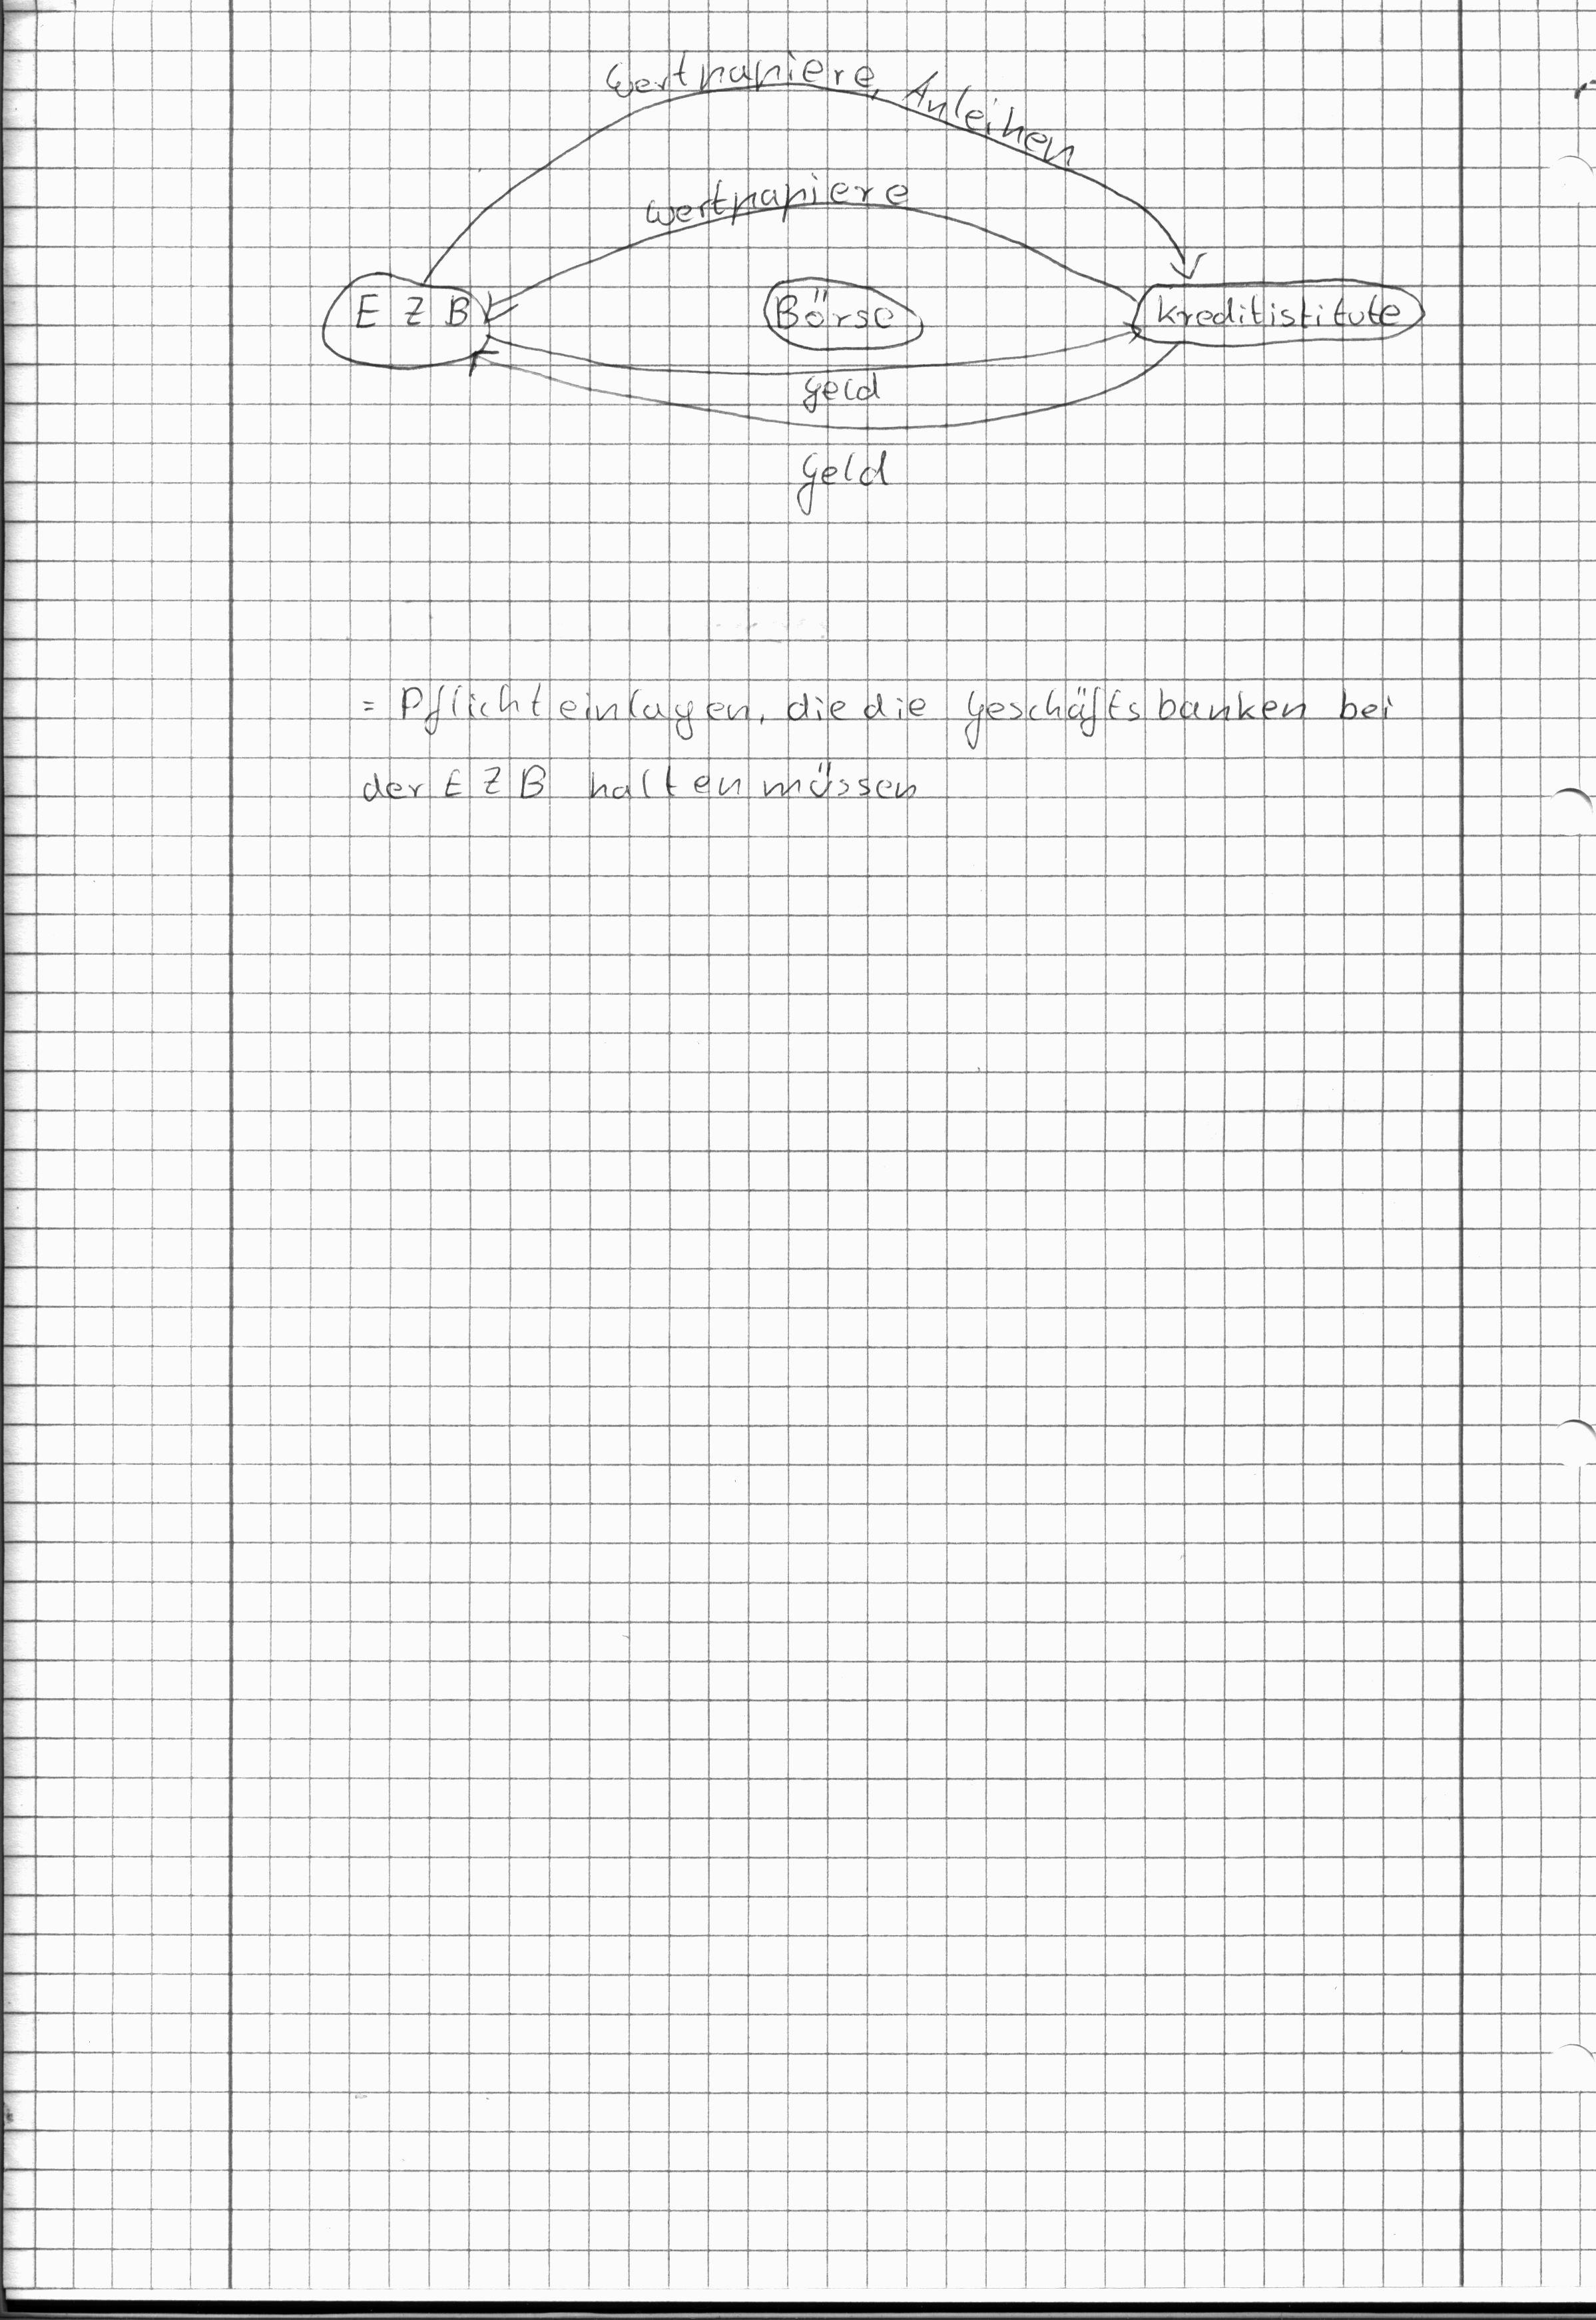 Wertpapiere, Anleihen
Wertpapiere
EZB
Börse
Kreditistitute
Geld
Geld
= Pflichteinlagen, die die Geschäftsbanken bei
der EZB halten müssen